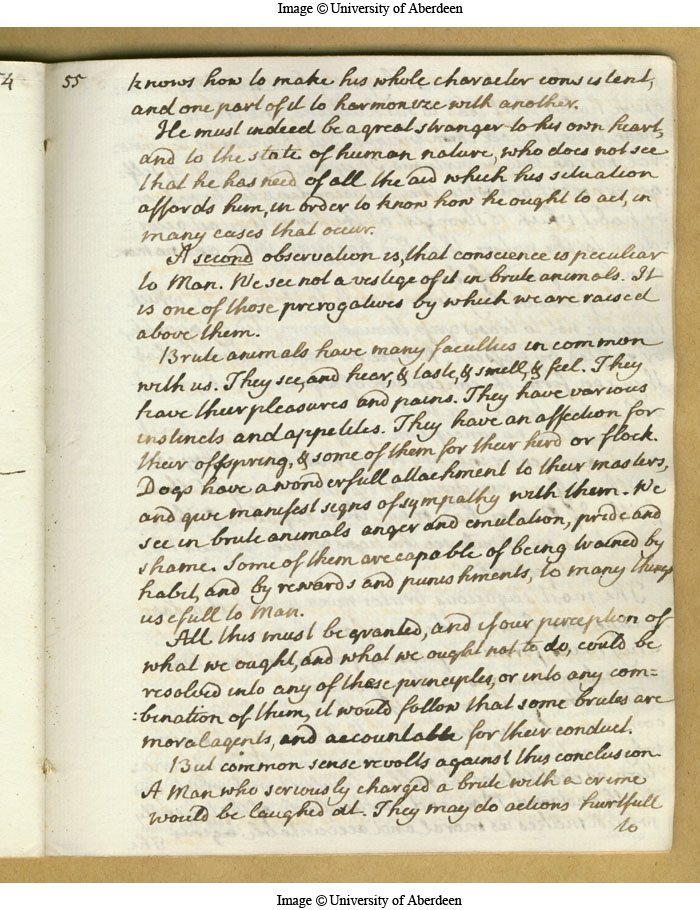 Image © University of Aberdeen
54
55
knows how to make his whole character consistent,
and one part of it to harmonize with another.
He must indeed be a great stranger to his own heart,
and to the state of human nature, who does not see
that he has need of all the aid which his situation
affords him, in order to know how he ought to act, in
many cases that occur.
A second observation is, that conscience is peculiar
to Man. We see not a vestige of it in brute animals. It
is one of those prerogatives by which we are raised
above them.
Brute animals have many faculties in common
with us. They see, and hear, & taste, & smell, & feel. They
have their pleasures and pains. They have various
instincts and appetites. They have an affection for
their offspring, & some of them for their herd or flock.
Dogs have a wonderfull attachment to their masters,
and give manifest signs of sympathy with them. We
see in brute animals anger and emulation, pride and
shame. Some of them are capable of being trained by
habit, and by rewards and punishments, to many things
usefull to Man.
All this must be granted, and if our perception of
what we ought, and what we ought not to do, could be
resolved into any of these principles, or into any com=
:bination of them, it would follow that some brutes are
moral agents, and accountable for their conduct.
But common sense revolts against this conclusion.
A Man who seriously charged a brute with a crime
would be laughed at. They may do actions hurtfull
to
Image © University of Aberdeen